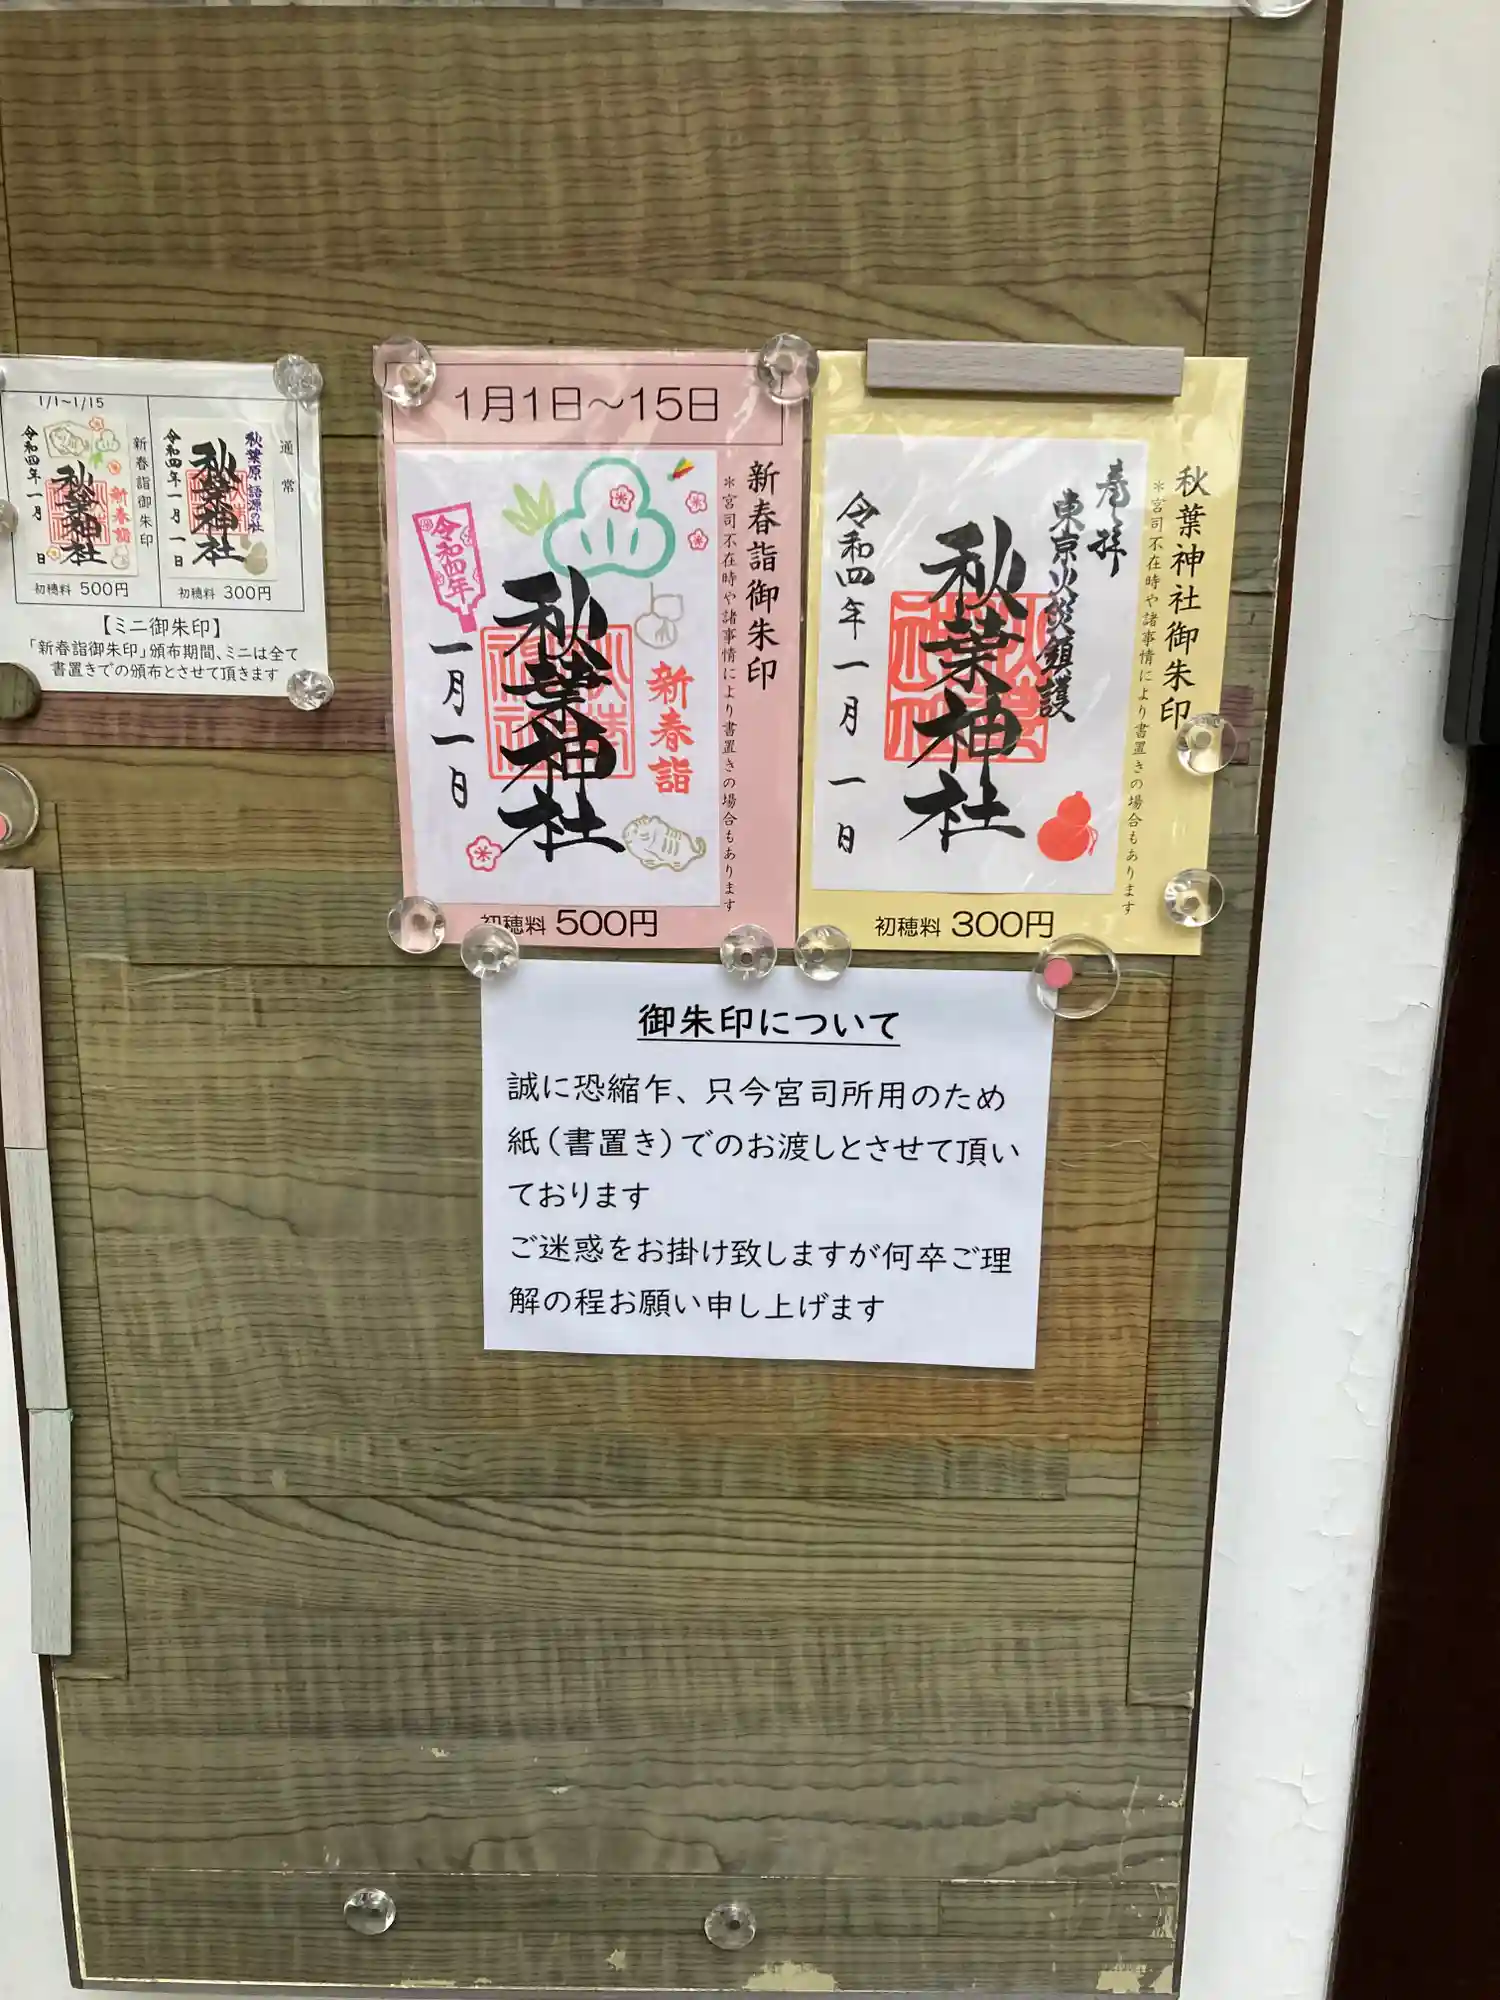 1/1~1/15
新春詣御朱印
令和四年 一月 日
秋葉神社
新春詣
初穂料 500円
通常
秋葉原 語源の社
秋葉神社
令和四年 一月 一日
初穂料 300円
【ミニ御朱印】
「新春詣御朱印」頒布期間、ミニは全て
書置きでの頒布とさせて頂きます
1月1日～15日
新春詣御朱印
＊宮司不在時や諸事情により書置きの場合もあります
新春詣
秋葉神社
令和四年
一月一日
初穂料 500円
秋葉神社御朱印
＊宮司不在時や諸事情により書置きの場合もあります
奉拝
東京火災鎮護
秋葉神社
令和四年 一月 一日
初穂料 300円
御朱印について
誠に恐縮乍、只今宮司所用のため
紙（書置き）でのお渡しとさせて頂い
ております
ご迷惑をお掛け致しますが何卒ご理
解の程お願い申し上げます